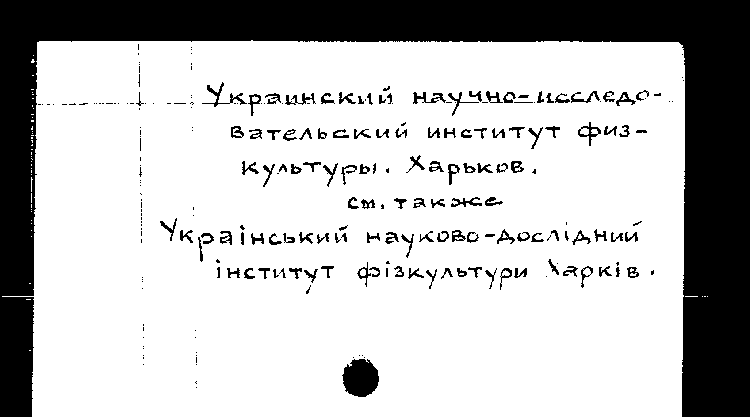 Украинский научно-исследо-
вательский институт физ-
культуры. Харьков.
см. также
Український науково-дослідний
інститут фізкультури Харків.